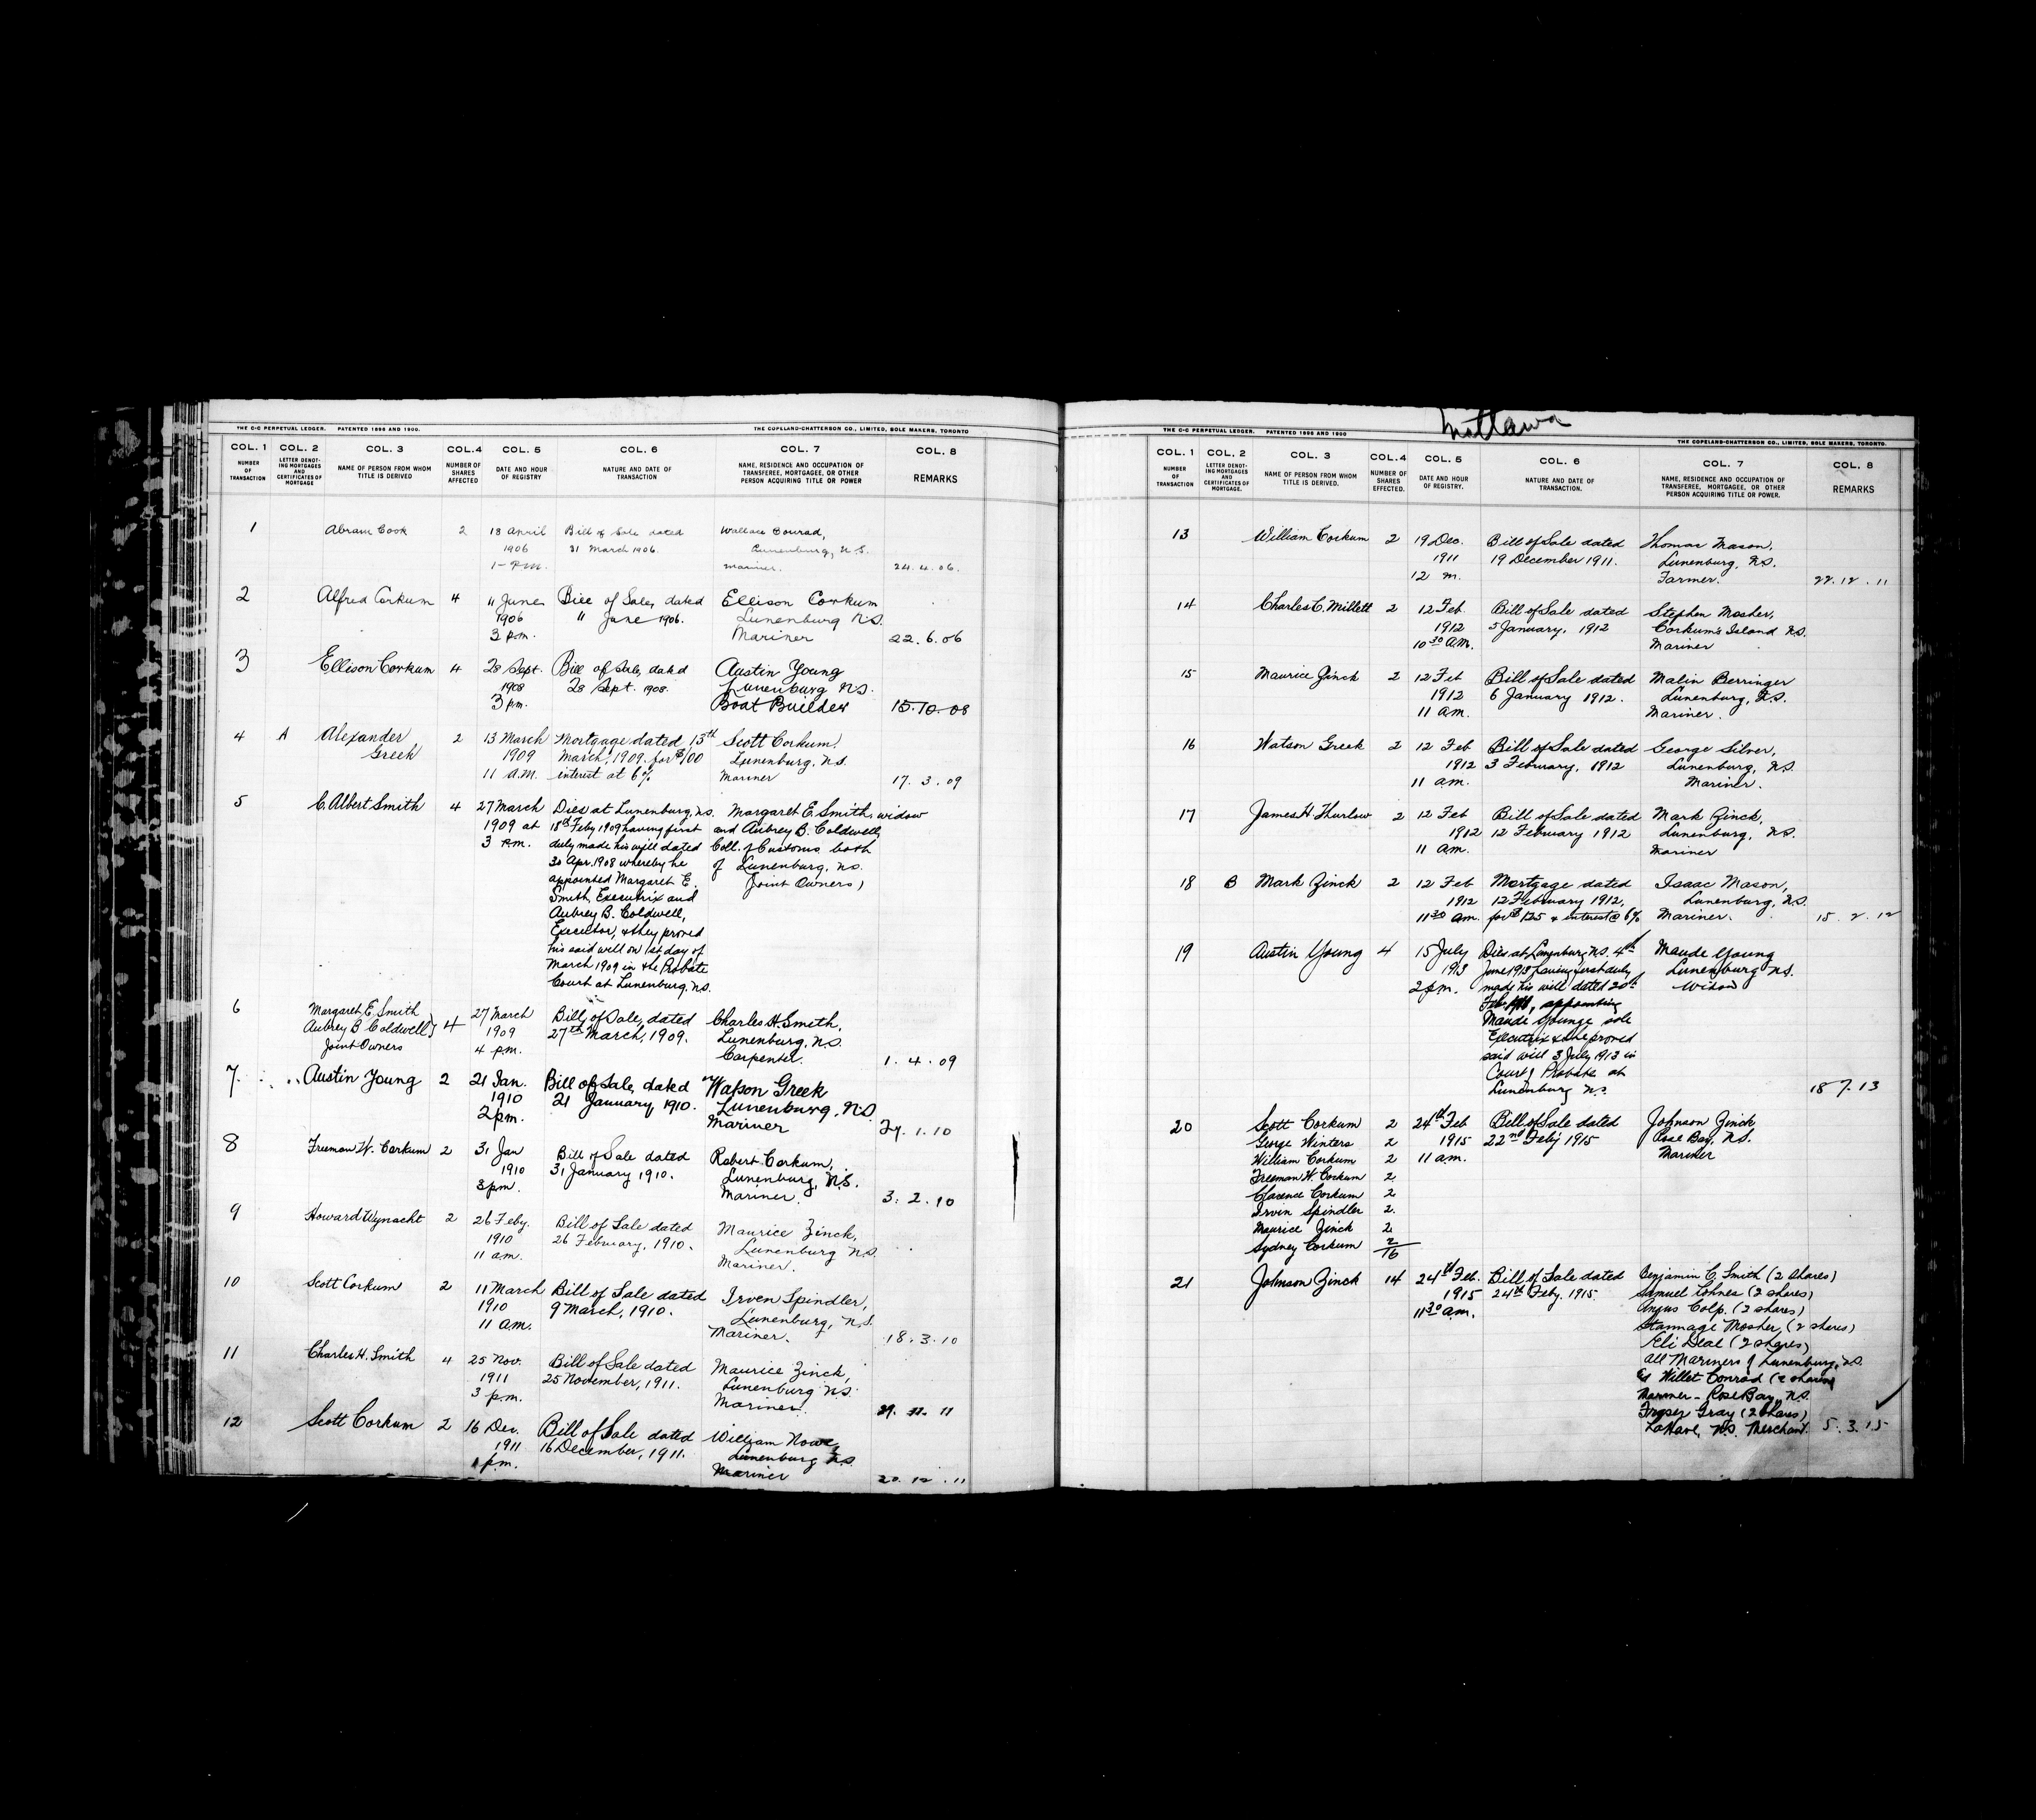 THE C-C PERPETUAL LEDGER. PATENTED 1896 AND 1900. THE COPELAND-CHATTERSON CO., LIMITED, SOLE MAKERS, TORONTO
COL. 1 COL. 2 COL. 3 COL. 4 COL. 5 COL. 6 COL. 7 COL. 8
NUMBER OF TRANSACTION
LETTER DENOT-ING MORTGAGES AND CERTIFICATES OF MORTGAGE
NAME OF PERSON FROM WHOM TITLE IS DERIVED
NUMBER OF SHARES AFFECTED
DATE AND HOUR OF REGISTRY
NATURE AND DATE OF TRANSACTION
NAME, RESIDENCE AND OCCUPATION OF TRANSFEREE, MORTGAGEE, OR OTHER PERSON ACQUIRING TITLE OR POWER
REMARKS
1 Abram Cook 2 18 April Bill of Sale dated Wallace Conrad,
1906 31 March 1906. Lunenburg, N.S.
1 - P.M. Mariner. 24.4.06.
2 Alfred Corkum 4 11 June Bill of Sale, dated Ellison Corkum
1906 11 June 1906. Lunenburg N.S.
3 p.m. Mariner 22.6.06
3 Ellison Corkum 4 28 Sept. Bill of Sale, dated Austin Young
1908 28 Sept. 1908. Lunenburg N.S.
3 pm. Boat Builder 15.10.08
4 A Alexander 2 13 March Mortgage dated 13th Scott Corkum,
Greek 1909 March, 1909. for $100 Lunenburg, N.S.
11 A.M. interest at 6% Mariner 17.3.09
5 C. Albert Smith 4 27 March Dies at Lunenburg, N.S. Margaret E. Smith, widow
1909 at 18th Feby 1909 having first and Aubrey B. Coldwell,
3 P.M. duly made his will dated Coll. of Customs, both
30 Apr. 1908 whereby he of Lunenburg, N.S.
appointed Margaret E. Joint Owners)
Smith, Executrix and
Aubrey B. Coldwell,
Executor, & they proved
his said will on 1st day of
March 1909 in the Probate
Court at Lunenburg, N.S.
6 Margaret E. Smith 27 March Bill of Sale, dated Charles H. Smith,
Aubrey B Coldwell } 4 1909 27th March, 1909. Lunenburg, N.S.
Joint Owners 4 p.m. Carpenter. 1.4.09
7 Austin Young 2 21 Jan. Bill of Sale, dated Watson Greek
1910 21 January, 1910. Lunenburg, N.S.
2 pm. Mariner 24.1.10
8 Freeman W. Corkum 2 31 Jan Bill of Sale dated Robert Corkum,
1910 31 January 1910. Lunenburg, N.S.
3 pm. Mariner. 3.2.10
9 Howard Wynacht 2 26 Feby. Bill of Sale dated Maurice Zinck,
1910 26 February, 1910. Lunenburg N.S.
11 a.m. Mariner.
10 Scott Corkum 2 11 March Bill of Sale dated Irven Spindler,
1910 9 March, 1910. Lunenburg, N.S.
11 am. Mariner. 18.3.10
11 Charles H. Smith 4 25 Nov. Bill of Sale dated Maurice Zinck,
1911 25 November, 1911. Lunenburg N.S.
3 p.m. Mariner. 29.11.11
12 Scott Corkum 2 16 Dec. Bill of Sale dated William Nowe,
1911 16 December, 1911. Lunenburg N.S.
1 pm. Mariner 20.12.11
Mattawa
THE C-C PERPETUAL LEDGER. PATENTED 1896 AND 1900 THE COPELAND-CHATTERSON CO., LIMITED, SOLE MAKERS, TORONTO.
COL. 1 COL. 2 COL. 3 COL. 4 COL. 5 COL. 6 COL. 7 COL. 8
NUMBER OF TRANSACTION
LETTER DENOT-ING MORTGAGES AND CERTIFICATES OF MORTGAGE.
NAME OF PERSON FROM WHOM TITLE IS DERIVED.
NUMBER OF SHARES EFFECTED.
DATE AND HOUR OF REGISTRY.
NATURE AND DATE OF TRANSACTION.
NAME, RESIDENCE AND OCCUPATION OF TRANSFEREE, MORTGAGEE, OR OTHER PERSON ACQUIRING TITLE OR POWER.
REMARKS
13 William Corkum 2 19 Dec. Bill of Sale dated Thomas Mason,
1911 19 December 1911. Lunenburg, N.S.
12 m. Farmer. 22.12.11
14 Charles C. Millett 2 12 Feb. Bill of Sale dated Stephen Mosher,
1912 5 January, 1912 Corkum's Island N.S.
10 30 A.M. Mariner
15 Maurice Zinck 2 12 Feb Bill of Sale dated Malin Berringer
1912 6 January 1912. Lunenburg, N.S.
11 am. Mariner.
16 Watson Greek 2 12 Feb Bill of Sale dated George Silver,
1912 3 February, 1912 Lunenburg, N.S.
11 am. Mariner.
17 James H. Thurlow 2 12 Feb Bill of Sale dated Mark Zinck,
1912 12 February 1912 Lunenburg, N.S.
11 am. Mariner
18 B Mark Zinck 2 12 Feb Mortgage dated Isaac Mason,
1912 12 February 1912, Lunenburg, N.S.
11 30 am. for $125 & interest @ 6% Mariner. 15.2.12
19 Austin Young 4 15 July Dies at Lunenburg N.S. 4th Maude Young
1913 June 1913 having first duly Lunenburg N.S.
2 pm. made his will dated 20th Widow
appointing
Maude Younge sole
Executrix & she proved
said will 3 July 1913 in
Court of Probate at
Lunenburg N.S. 18.7.13
20 Scott Corkum 2 24th Feb Bill of Sale dated Johnson Zinck
George Winters 2 1915 22nd Feby 1915 Rose Bay, N.S.
William Corkum 2 11 a.m. Mariner
Freeman W. Corkum 2
Clarence Corkum 2
Irvin Spindler 2
Maurice Zinck 2
Sydney Corkum 2
16
21 Johnson Zinck 14 24th Feb. Bill of Sale dated Benjamin C. Smith (2 shares)
1915 24th Feby. 1915. Samuel Tohnes (2 shares)
11 30 am. Angus Colp. (2 shares)
Stannage Mosher, (2 shares)
Eli Deal (2 shares)
all Mariners of Lunenburg, N.S.
Willet Conrad (2 shares)
Mariner - Rose Bay, N.S.
Gray (2 shares)
LaHave, N.S. Merchant. 5.3.15